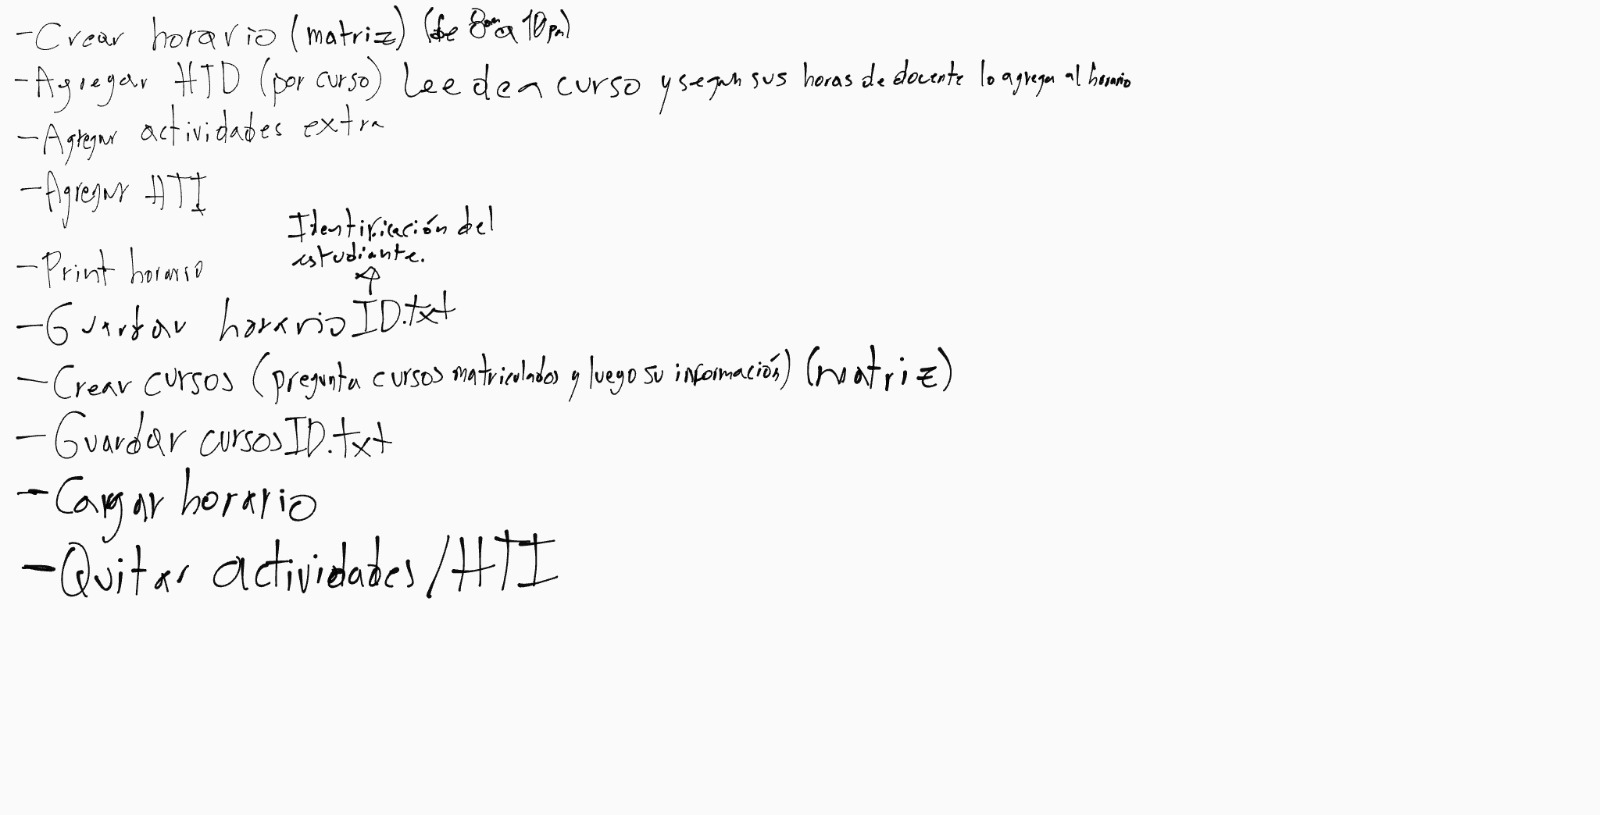 - Crear horario (matriz) (de 8am a 10pm)
- Agregar HTD (por curso) Lee de curso y segun sus horas de docente lo agrega al horario
- Agregar actividades extra
- Agregar HTI
Identificación del
estudiante.
- Print horario
- Guardar horarioID.txt
- Crear cursos (pregunta cursos matriculados y luego su información) (matriz)
- Guardar cursosID.txt
- Cargar horario
- Quitar actividades/HTI